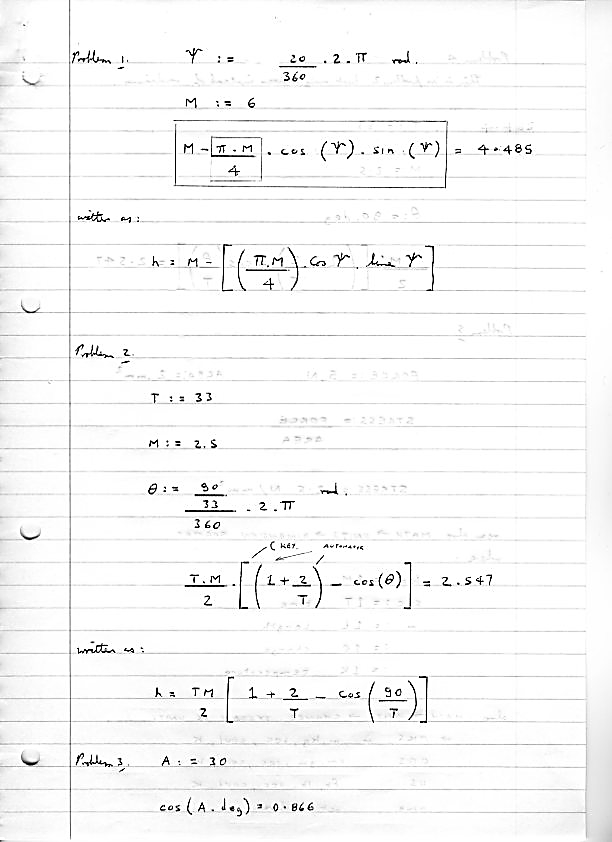 Problem 1. Ψ := 20/360 . 2 . π rad.
M := 6
M - π . M/4 . cos (Ψ) . sin (Ψ) = 4.485
written as:
h = M - [(π.M/4) . cos Ψ . sine Ψ]
Problem 2.
T := 33
M := 2.5
θ := 90/33/360 . 2 . π rad.
( KEY. AUTOMATIC
T.M/2 . [(1 + 2/T) - cos (θ)] = 2.547
written as:
h = TM/2 [1 + 2/T - cos (90/T)]
Problem 3. A := 30
cos (A . deg) = 0.866